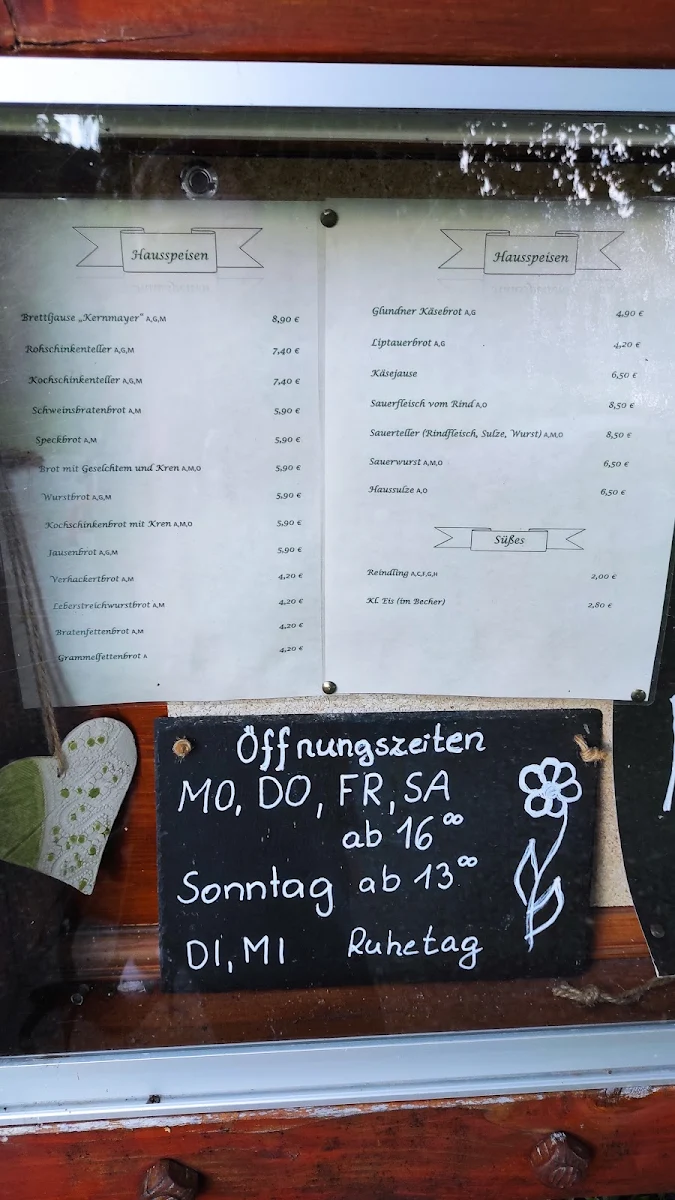 Hausspeisen
Brettljause „Kernmayer“ A,G,M 8,90 €
Rohschinkenteller A,G,M 7,40 €
Kochschinkenteller A,G,M 7,40 €
Schweinsbratenbrot A,M 5,90 €
Speckbrot A,M 5,90 €
Brot mit Geselchtem und Kren A,M,O 5,90 €
Wurstbrot A,G,M 5,90 €
Kochschinkenbrot mit Kren A,M,O 5,90 €
Jausenbrot A,G,M 5,90 €
Verhackertbrot A,M 4,20 €
Leberstreichwurstbrot A,M 4,20 €
Bratenfettenbrot A,M 4,20 €
Grammelfettenbrot A 4,20 €
Hausspeisen
Glundner Käsebrot A,G 4,90 €
Liptauerbrot A,G 4,20 €
Käsejause 6,50 €
Sauerfleisch vom Rind A,O 8,50 €
Sauerteller (Rindfleisch, Sulze, Wurst) A,M,O 8,50 €
Sauerwurst A,M,O 6,50 €
Haussulze A,O 6,50 €
Süßes
Reindling A,C,F,G,H 2,00 €
Kl. Eis (im Becher) 2,80 €
Öffnungszeiten
MO, DO, FR, SA
ab 16°°
Sonntag ab 13°°
DI, MI Ruhetag